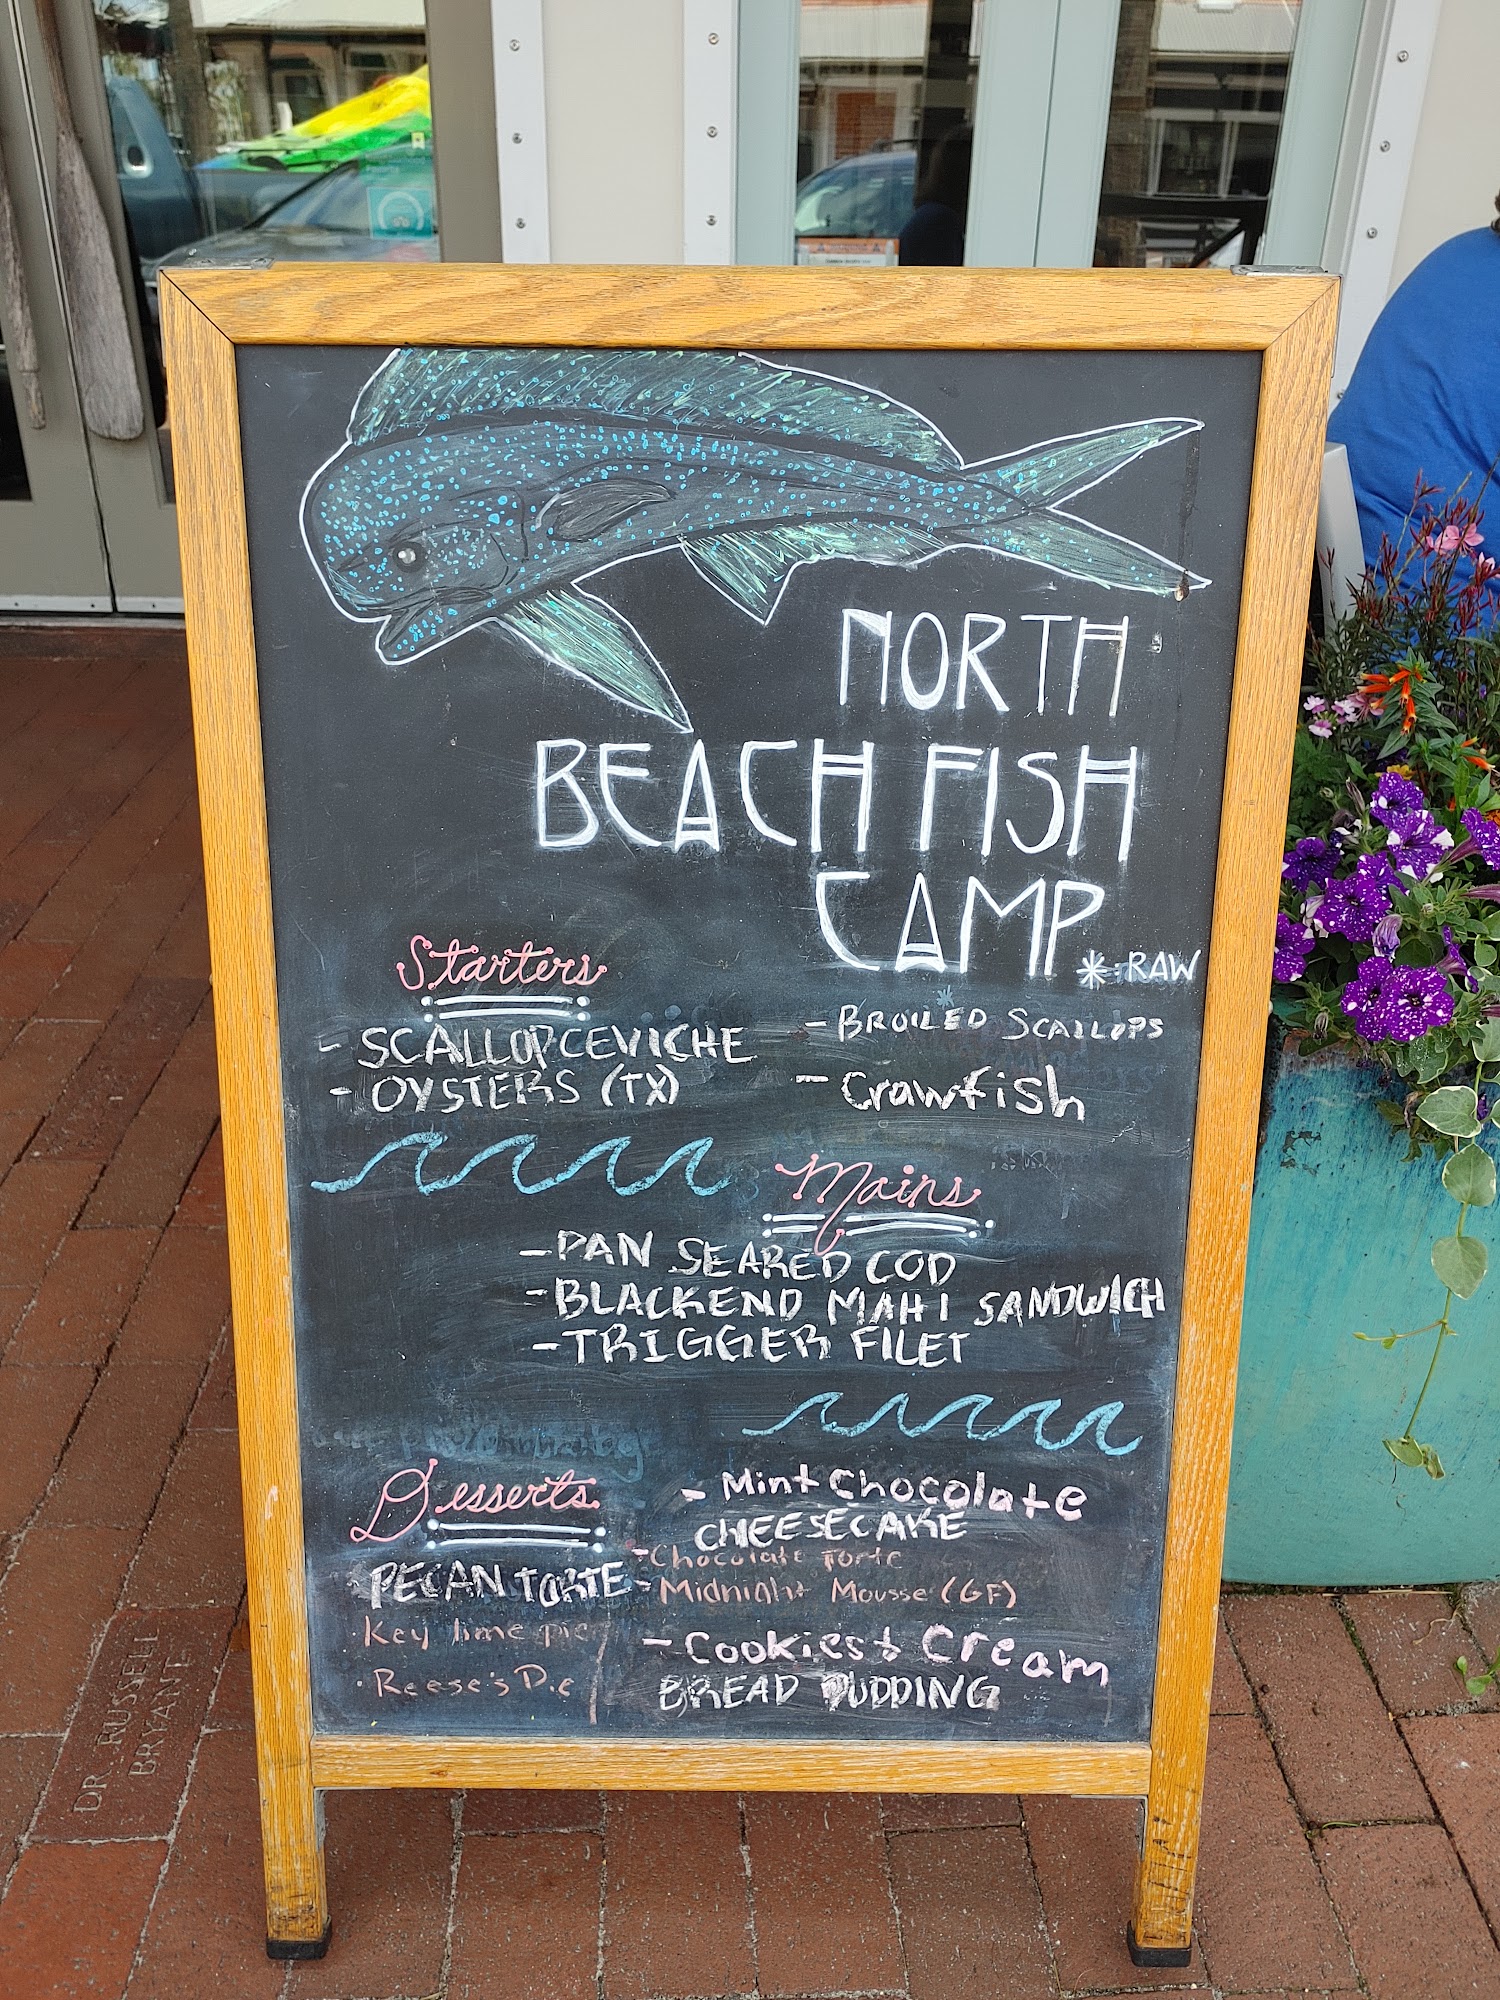 NORTH
BEACH FISH
CAMP
*:RAW
Starters
- SCALLOP CEVICHE
- OYSTERS (TX)
- BROILED SCALLOPS
- Crawfish
Mains
- PAN SEARED COD
- BLACKEND MAHI SANDWICH
- TRIGGER FILET
Desserts
PECAN TORTE
· Key lime pie
· Reese's Pie
- Mint Chocolate
CHEESECAKE
- Chocolate Torte
- Midnight Mousse (GF)
- Cookies & Cream
BREAD PUDDING
DR. RUSSELL
BRYANT